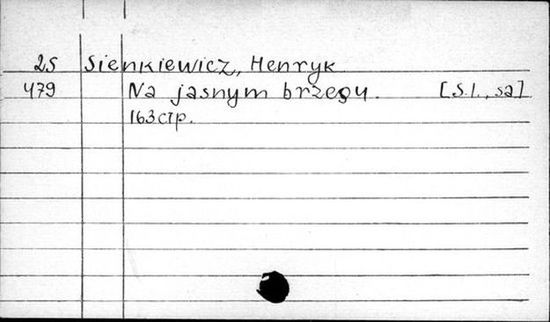 25 Sienkiewicz, Henryk
479 Na jasnym brzegu. [S.l., sa]
163 стр.